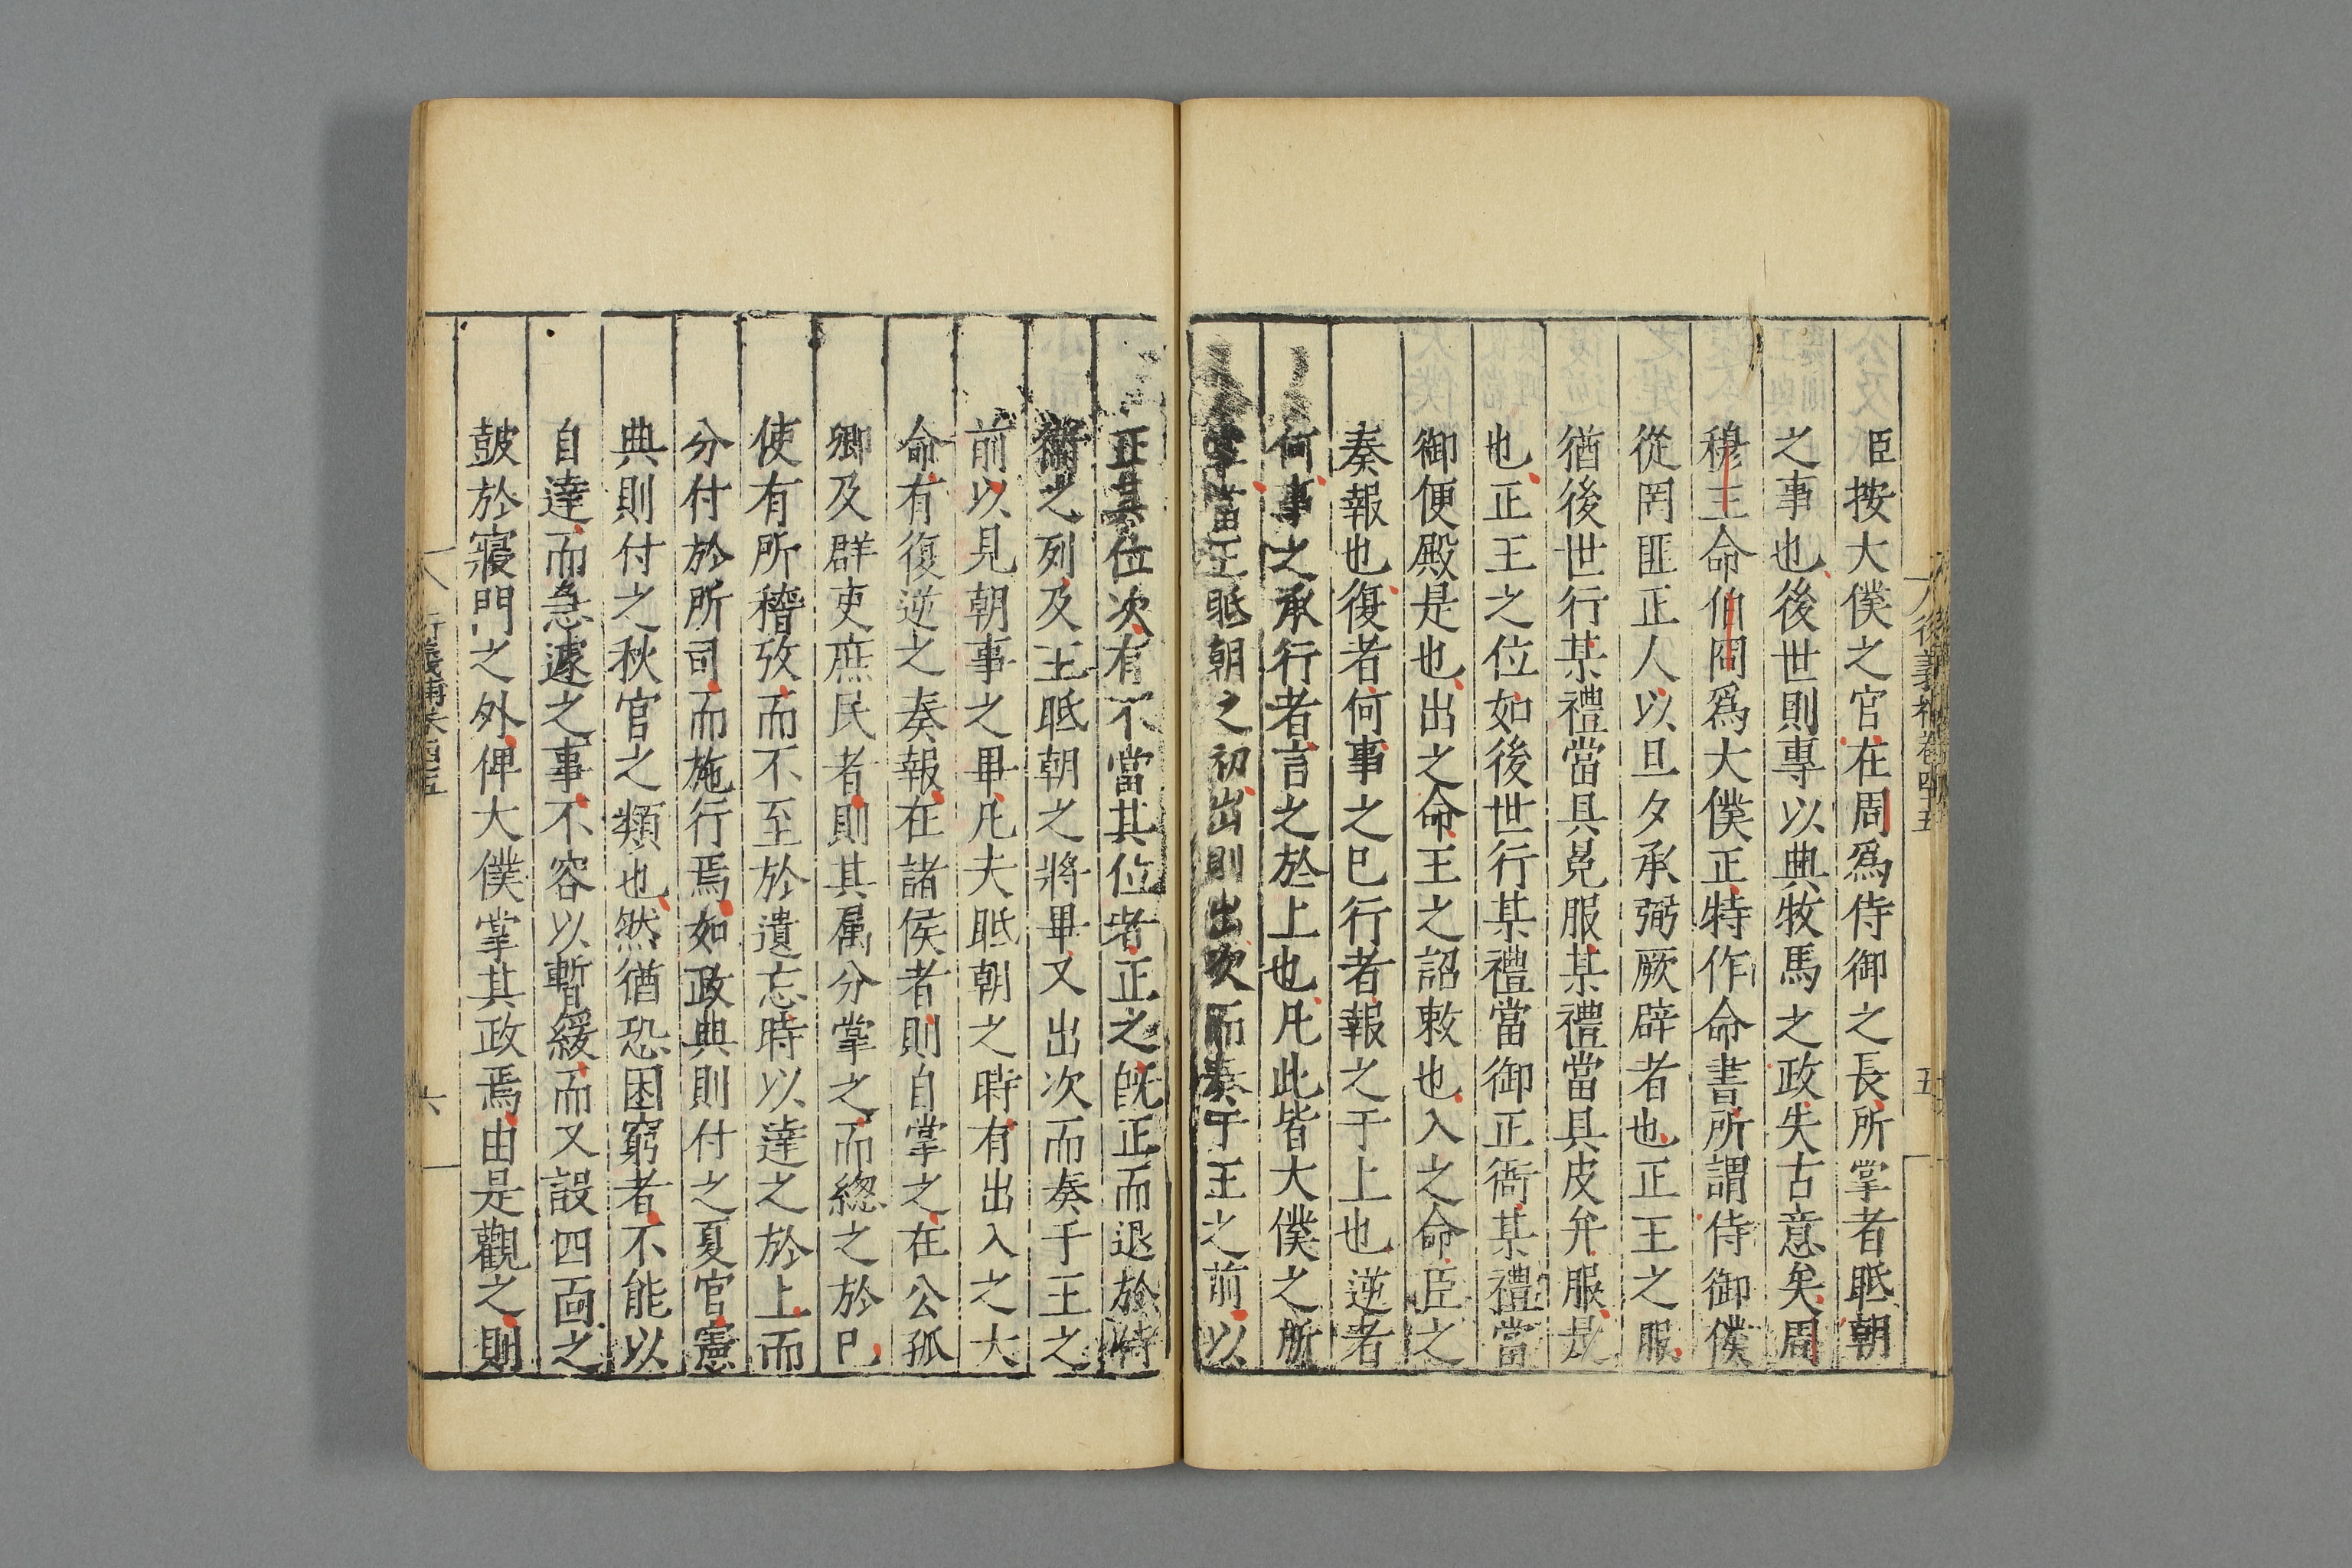 臣按大僕之官在周爲侍御之長所掌者眡朝
之事也後世則專以典牧馬之政失古意矣周
穆王命伯冏爲大僕正特作命書所謂侍御僕
從罔匪正人以旦夕承弼厥辟者也正王之服
猶後世行某禮當具冕服某禮當具皮弁服是
也正王之位如後世行某禮當御正衙某禮當
御便殿是也出之命王之詔敕也入之命臣之
奏報也復者何事之已行者報之于上也逆者
何事之承行者言之於上也凡此皆大僕之所
掌當王眡朝之初出則出次而奏于王之前以
正其位次有不當其位者正之既正而退於待
之列及王眡朝之將畢又出次而奏于王之
前以見朝事之畢凡夫眡朝之時有出入之大
命有復逆之奏報在諸侯者則自掌之在公孤
卿及群吏庶民者則其属分掌之而緫之於已
使有所稽攷而不至於遺忘時以達之於上而
分付於所司而施行焉如政典則付之夏官憲
典則付之秋官之類也然猶恐困窮者不能以
自達而急遽之事不容以暫緩而又設四面之
鼓於寢門之外俾大僕掌其政焉由是觀之則
衍義補卷四五
五
衍義補卷四五
六